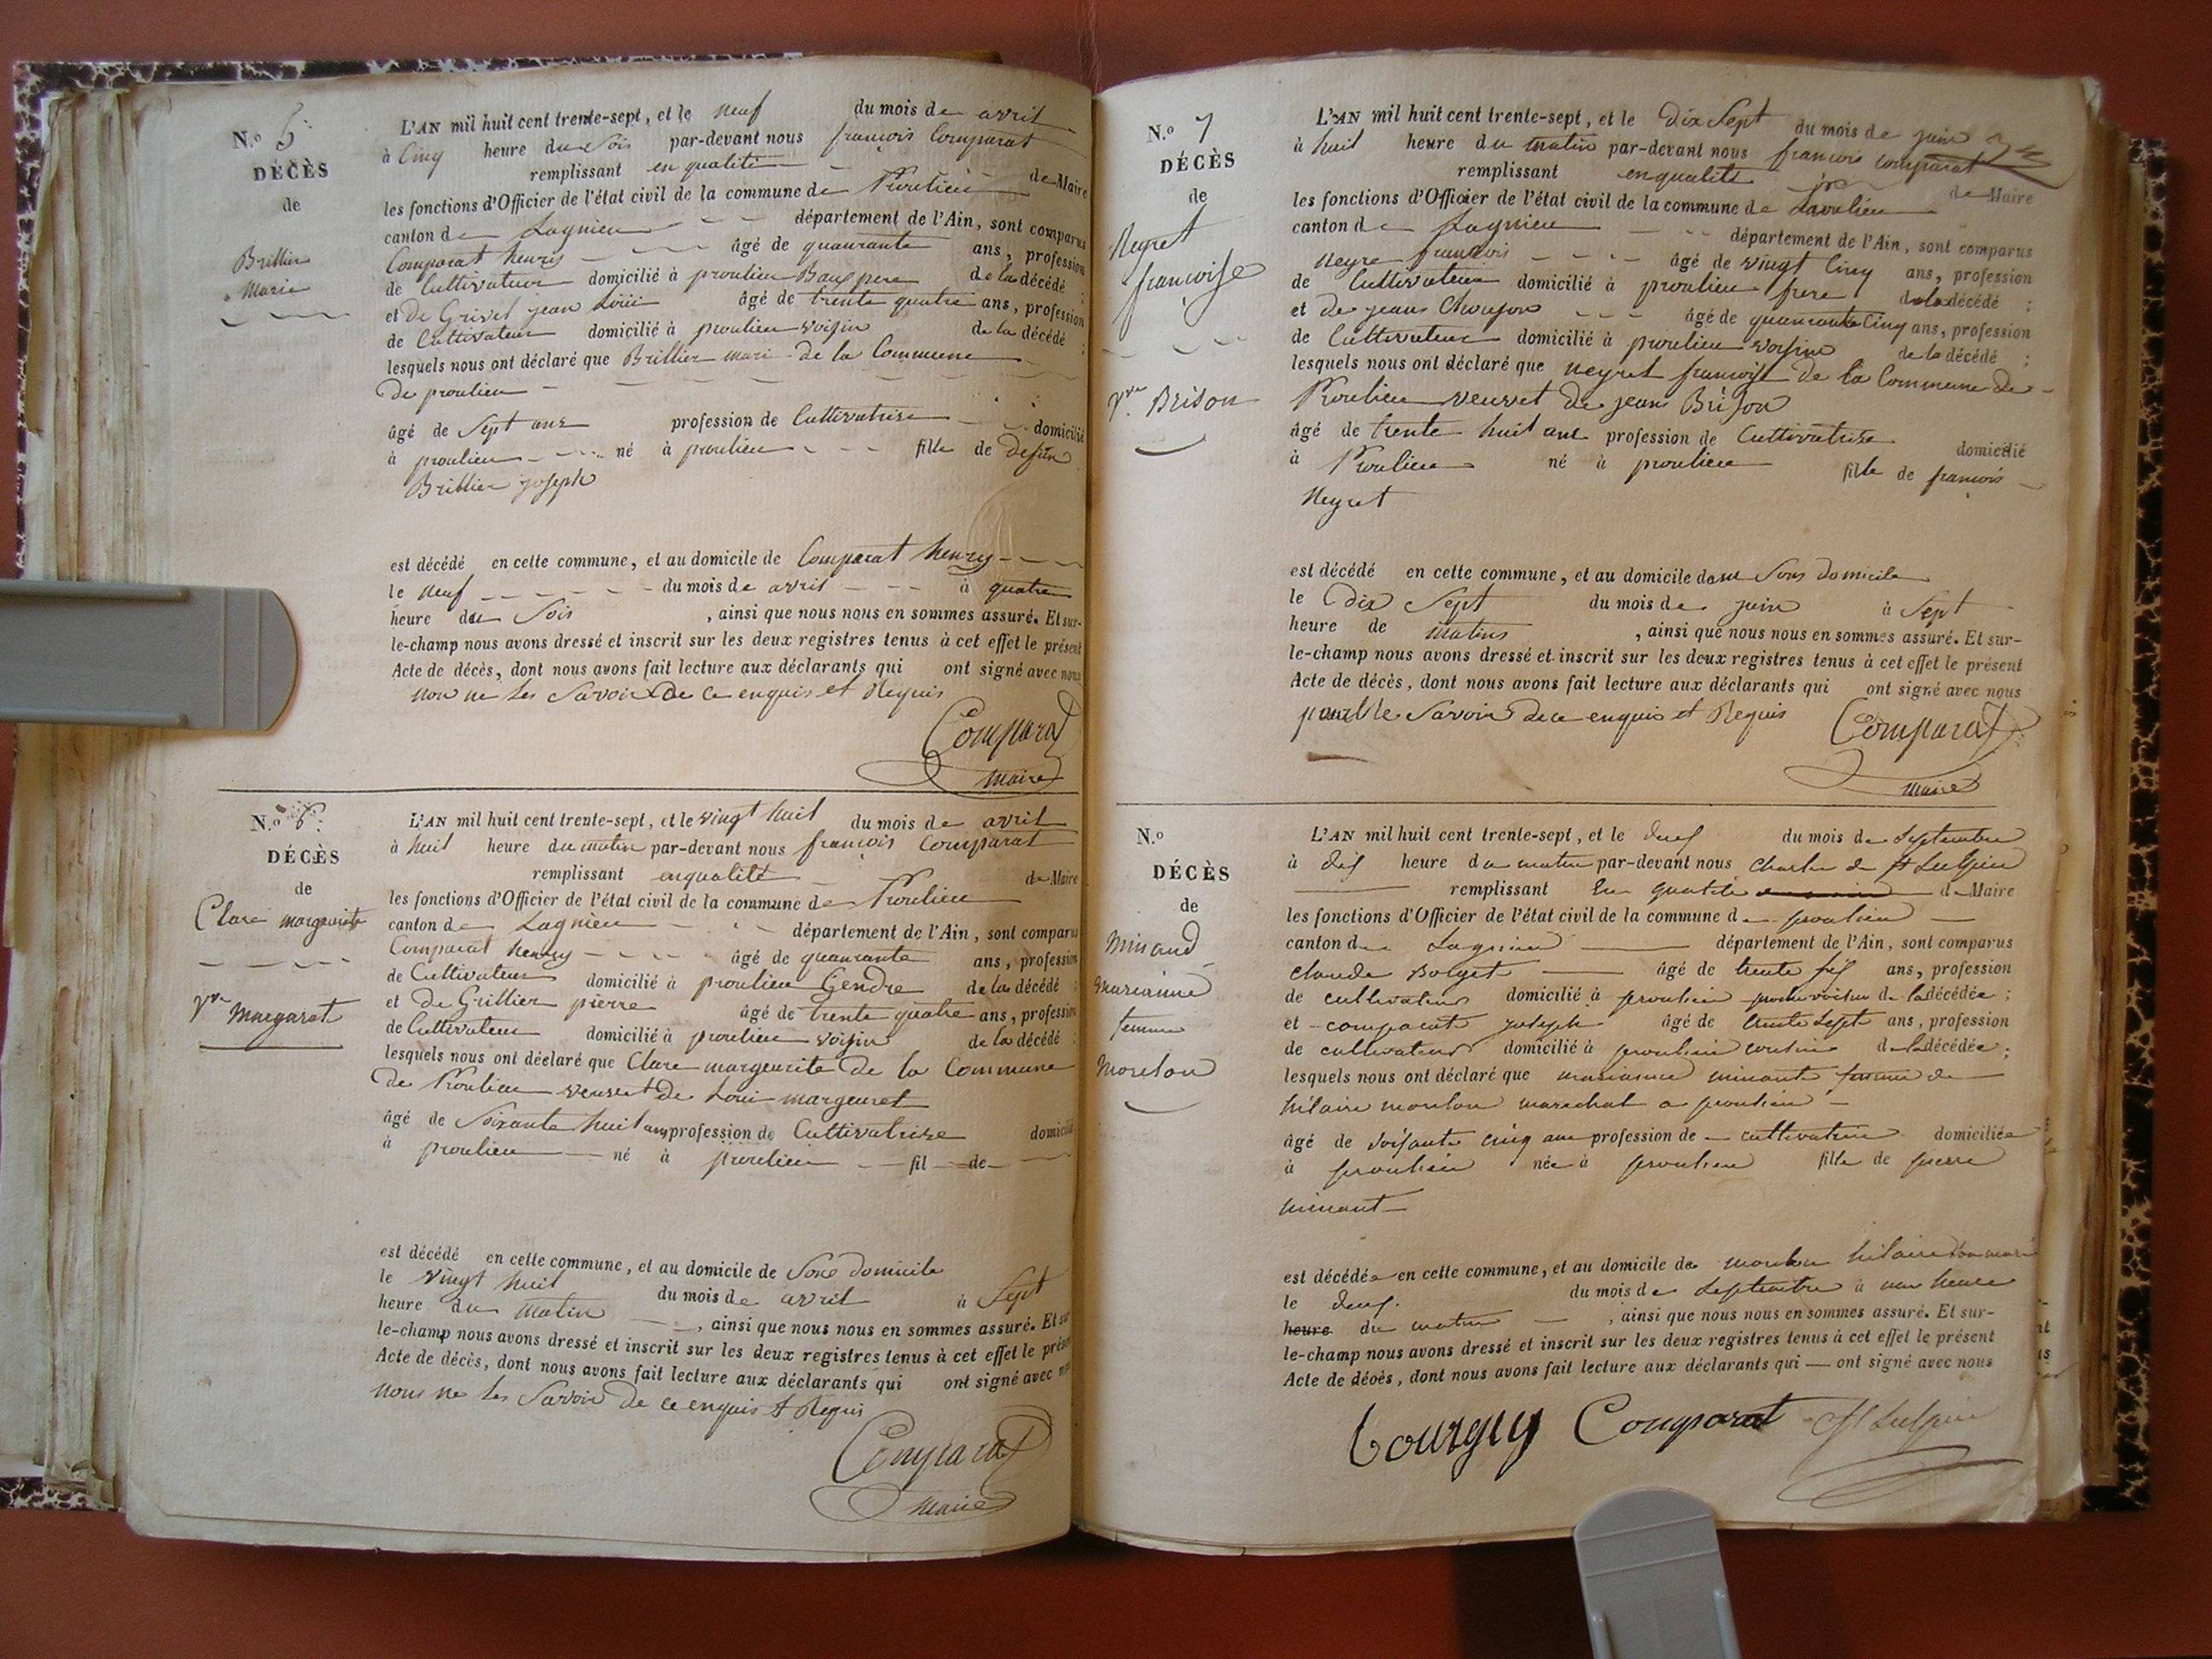 N.o 5.
DÉCÈS
de
Brillier
Marie
L'AN mil huit cent trente-sept, et le neuf du mois de avril
à Cinq heure du Soir par-devant nous françois Comparat
remplissant en qualité de Maire
les fonctions d'Officier de l'état civil de la commune de Proulieu
canton de Lagnieu département de l'Ain, sont comparus
Comparat henris âgé de quaurante ans, profession
de Cultivateur domicilié à proulieu Baus pere de la décédé ;
et de Grivel jean Loui âgé de trente quatre ans, profession
de Cultivateur domicilié à proulieu voisin de la décédé ;
lesquels nous ont déclaré que Brillier mari de la Commune
De proulieu
âgé de Sept ans profession de Cultivatrise domicilié
à proulieu né à proulieu fille de defun
Brillier joseph
est décédé en cette commune, et au domicile de Comparat henry
le neuf du mois de avril à quatre
heure du Soir , ainsi que nous nous en sommes assuré. Et sur-
le-champ nous avons dressé et inscrit sur les deux registres tenus à cet effet le présent
Acte de décès, dont nous avons fait lecture aux déclarants qui ont signé avec nous
non ne les Savoir de ce enquis et Requis
Comparat
Maire
N.o 6.
DÉCÈS
de
Clare margeurite
vve Margaret
L'AN mil huit cent trente-sept, et le vingt huit du mois de avril
à huit heure du matin par-devant nous françois Comparat
remplissant enqualité de Maire
les fonctions d'Officier de l'état civil de la commune de Proulieu
canton de Lagnieu département de l'Ain, sont comparus
Comparat henry âgé de quaurante ans, profession
de Cultivateur domicilié à proulieu Gendre de la décédé ;
et de Grillier pierre âgé de trente quatre ans, profession
de Cultivateur domicilié à proulieu voisin de la décédé ;
lesquels nous ont déclaré que Clare margeurite de la Commune
de Proulieu veuvet de Loui margeuret
âgé de Soixante huit ans profession de Cultivatrise domicilié
à proulieu né à proulieu fil de
est décédé en cette commune, et au domicile de Sone domicile
le vingt huit du mois de avril à Sept
heure du Matin , ainsi que nous nous en sommes assuré. Et sur
le-champ nous avons dressé et inscrit sur les deux registres tenus à cet effet le présent
Acte de décès, dont nous avons fait lecture aux déclarants qui ont signé avec nous
nous ne les Savoir de ce enquis et Requi
Comparat
Maire
N.o 7
DÉCÈS
de
Neyret
françoise
vve Brison
L'AN mil huit cent trente-sept, et le Dix Sept du mois de juin
à huit heure du matin par-devant nous françois comparat
remplissant enqualité de Maire
les fonctions d'Officier de l'état civil de la commune de Proulieu
canton de Lagnieu département de l'Ain, sont comparus
Neyre francois âgé de vingt Cinq ans, profession
de Cultivateur domicilié à proulieu frere de la décédé ;
et de jean âgé de quaurante Cinq ans, profession
de Cultivateur domicilié à proulieu voisine de la décédé ;
lesquels nous ont déclaré que neyret françoise de la Commune De
Proulieu veuvet De jean Brison
âgé de trente huit ans profession de Cultivatrise domicilié
à Proulieu né à proulieu fille de françois
Neyret
est décédé en cette commune, et au domicile dans Sons domicile
le Dix Sept du mois de juin à Sept
heure de Matins , ainsi que nous nous en sommes assuré. Et sur-
le-champ nous avons dressé et inscrit sur les deux registres tenus à cet effet le présent
Acte de décès, dont nous avons fait lecture aux déclarants qui ont signé avec nous
Savoir De ce enquis et Requis
Comparat
Maire
N.o
DÉCÈS
de
Minand
Marianne
femme
Moulon
L'AN mil huit cent trente-sept, et le deux du mois de Septembre
à dix heure du matin par-devant nous Charles de St Sulpice
remplissant en qualité de Maire
les fonctions d'Officier de l'état civil de la commune de proulieu
canton de Lagnieu département de l'Ain, sont comparus
Claude âgé de trente six ans, profession
de cultivateur domicilié à proulieu proche voisin de la décédée ;
et comparat joseph âgé de trente Sept ans, profession
de cultivateur domicilié à proulieu voisin de la décédée ;
lesquels nous ont déclaré que marianne minante femme de
hilaire moulon marechal a proulieu
âgé de Soixante cinq ans profession de cultivatrice domiciliée
à proulieu née à proulieu fille de pierre
minant
est décédée en cette commune, et au domicile de moulon hilaire son mari
le deux. du mois de Septembre à une heure
heure du matin , ainsi que nous nous en sommes assuré. Et sur-
le-champ nous avons dressé et inscrit sur les deux registres tenus à cet effet le présent
Acte de décès, dont nous avons fait lecture aux déclarants qui ont signé avec nous
Comparat St Sulpice